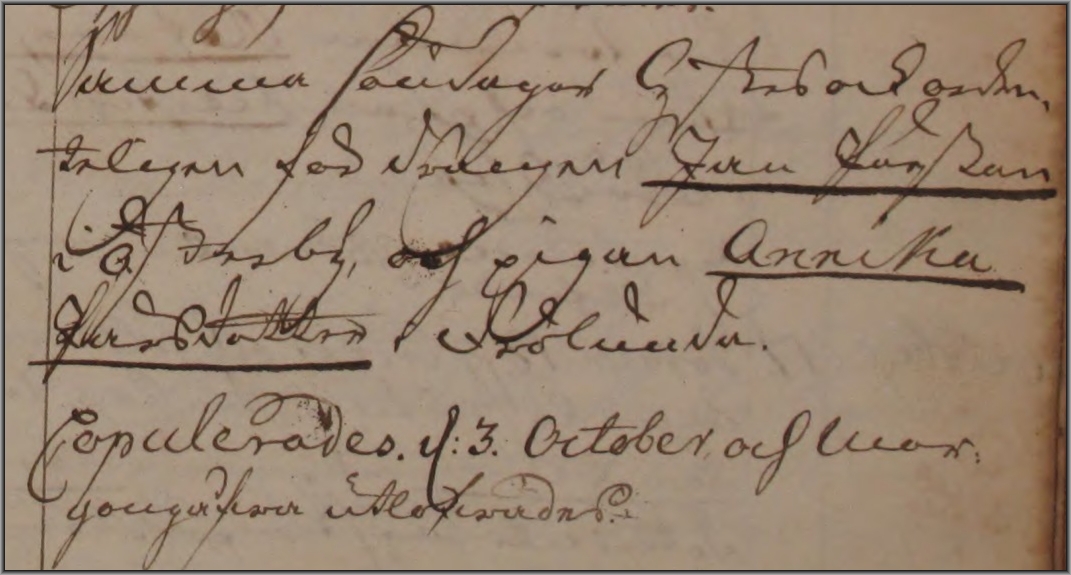 Samma söndagar Lystes ock orden-
teligen för drängen Jan Persson
i Österby, och pigan Annika
Larsdotter i Frölunda.
Copulerades. d: 3. October, och Mor-
gongåfwa utlofwades.